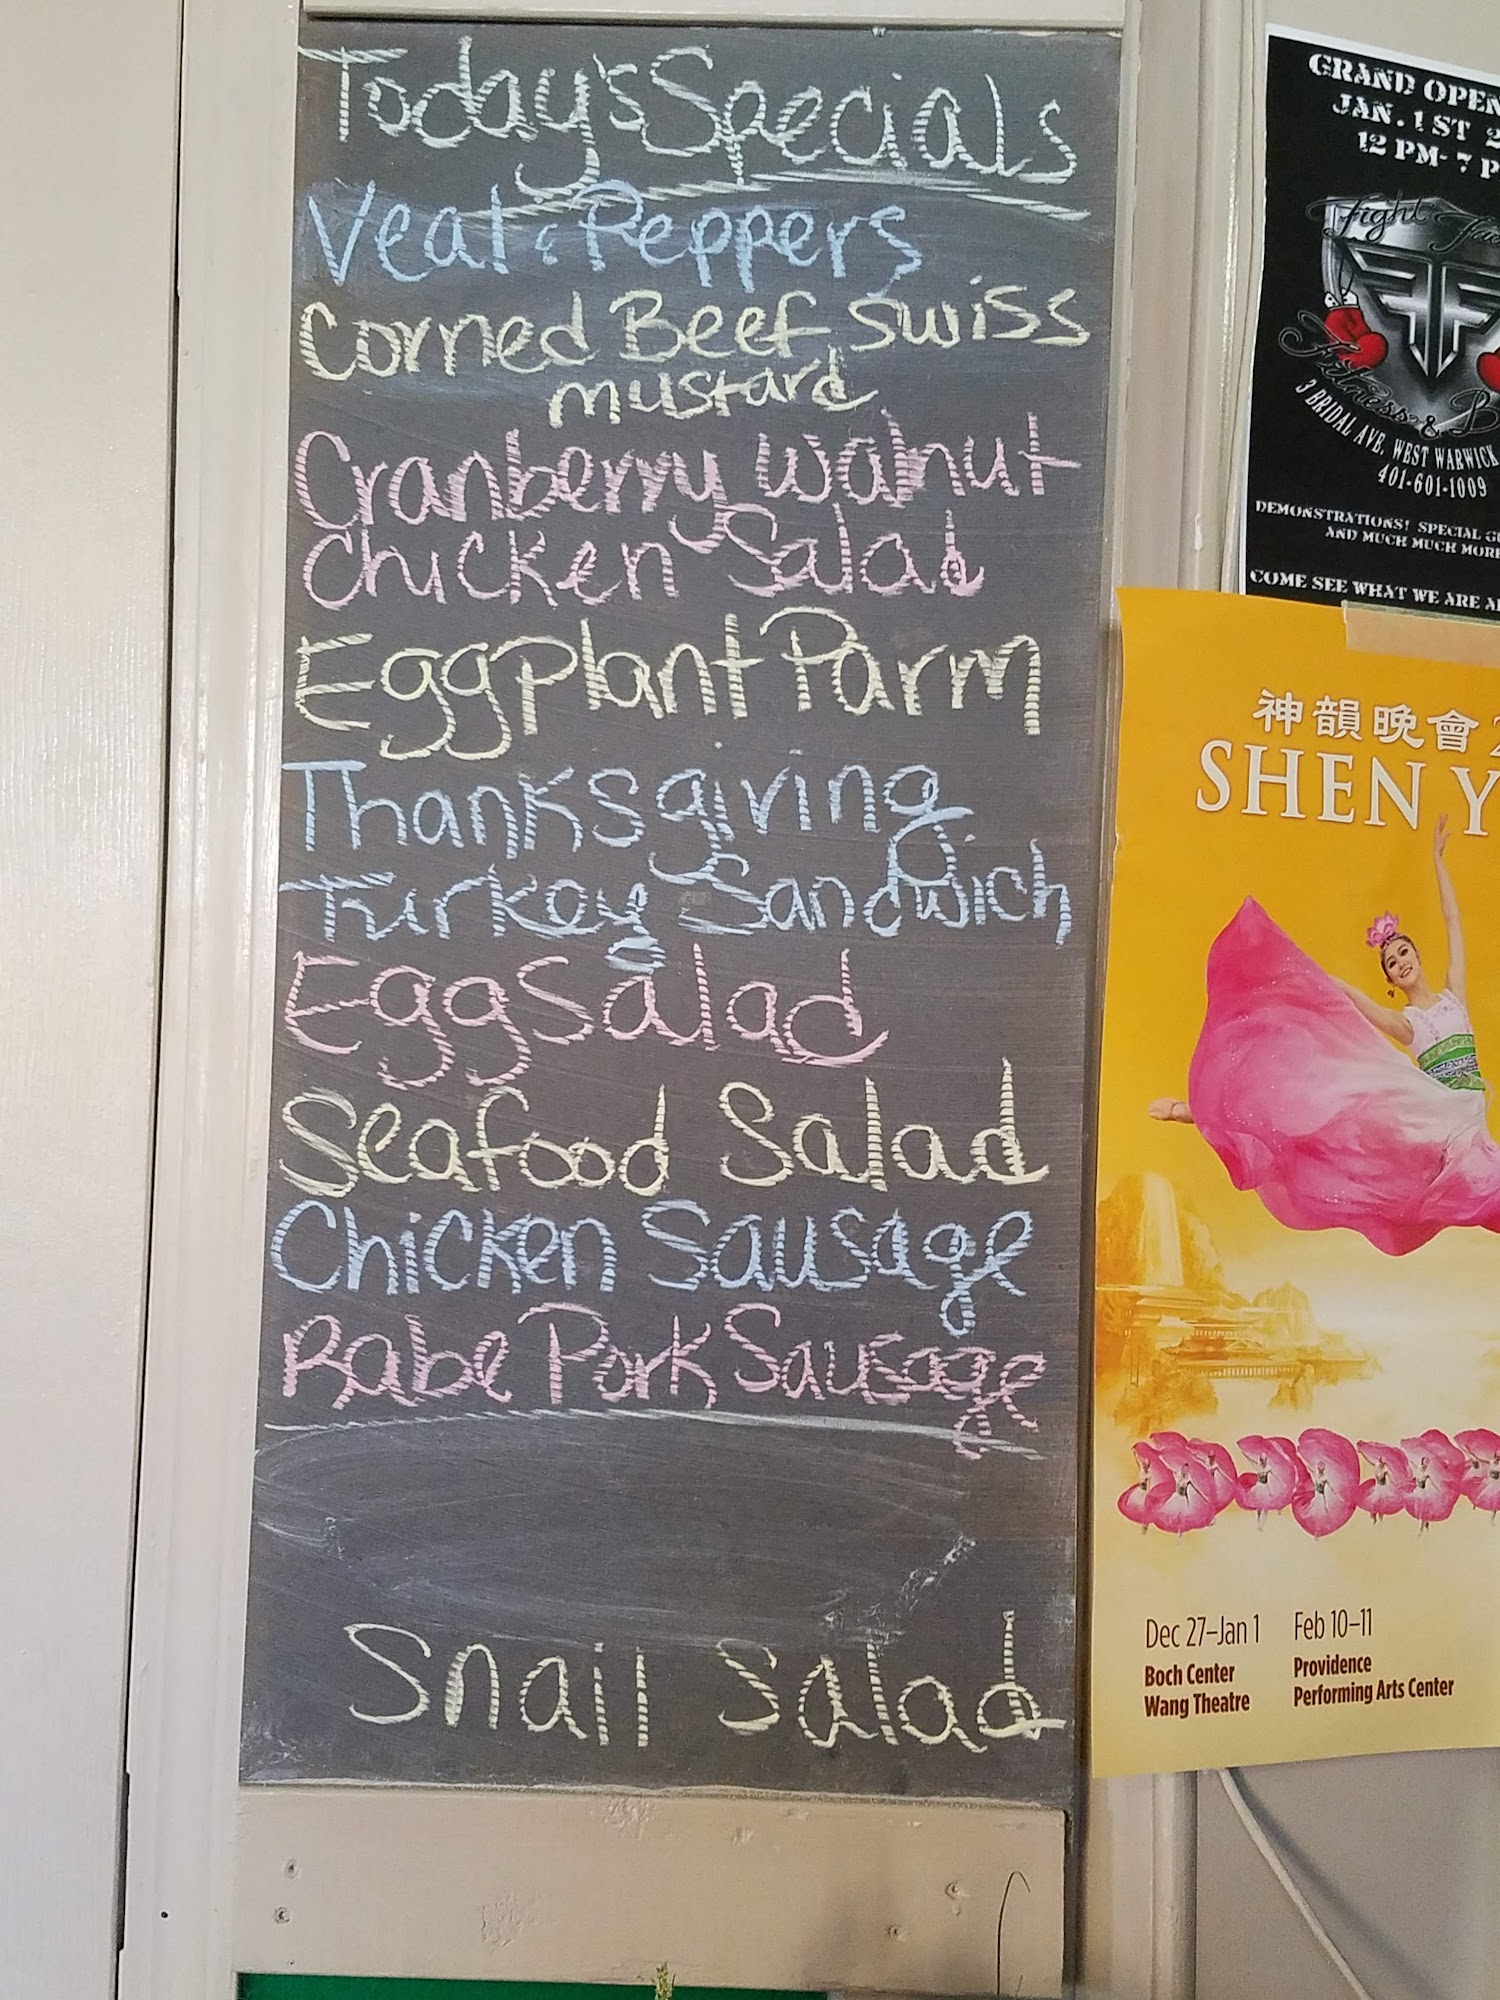 Today's Specials
Veal & Peppers
Corned Beef Swiss
mustard
Cranberry Walnut
Chicken Salad
Eggplant Parm
Thanksgiving
Turkey Sandwich
Egg Salad
Seafood Salad
Chicken Sausage
Rabe Pork Sausage
Snail Salad
GRAND OPEN
JAN. 1ST 2
12 PM-7 P
Fight
FF
Fitness & B
3 BRIDAL AVE. WEST WARWICK
401-601-1009
DEMONSTRATIONS! SPECIAL GU
AND MUCH MUCH MORE
COME SEE WHAT WE ARE A
神韻晚會2
SHEN Y
Dec 27–Jan 1
Boch Center
Wang Theatre
Feb 10–11
Providence
Performing Arts Center